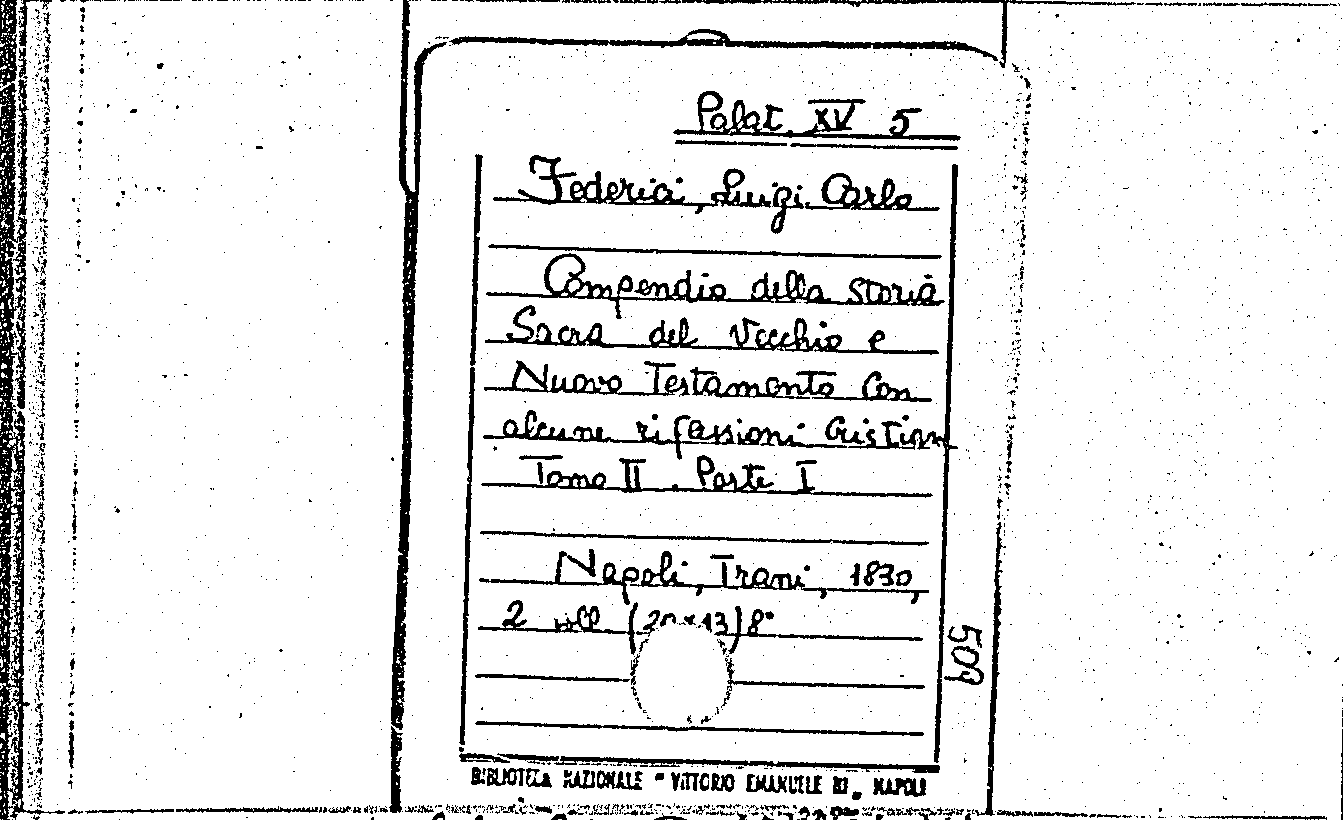 Palat. XV 5
Federici, Luigi Carlo
Compendio della storia
Sacra del Vecchio e
Nuovo Testamento con
alcune riflessioni Cristiane
Tomo II. Parte I
Napoli, Trani, 1830,
2 voll (20x13) 8°
509
BIBLIOTECA NAZIONALE "VITTORIO EMANUELE III" NAPOLI